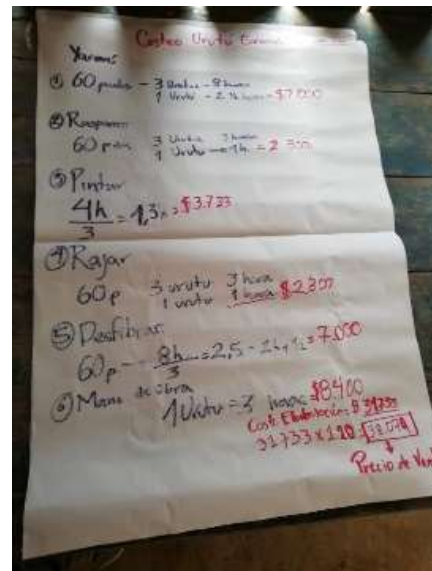 Costeo Urutu
① 60 - 3 Urutu - 8 horas
1 Urutu - 2 ½ hora = $7.000
②
60 3 Urutu 3 horas
1 Urutu 1h = 2.300
③ Pintar
4h = 1,3h = $3.733
3
④ Rajar
60p 3 urutu 3 hora
1 urutu 1 hora $2.300
⑤ Desfibrar
60p - 8h = 2,5 - = 7.000
3
⑥ Mano de obra
1 Urutu = 3 horas = $8.400
Costo Elaboración: $ 31733
31733 x 120
Precio de